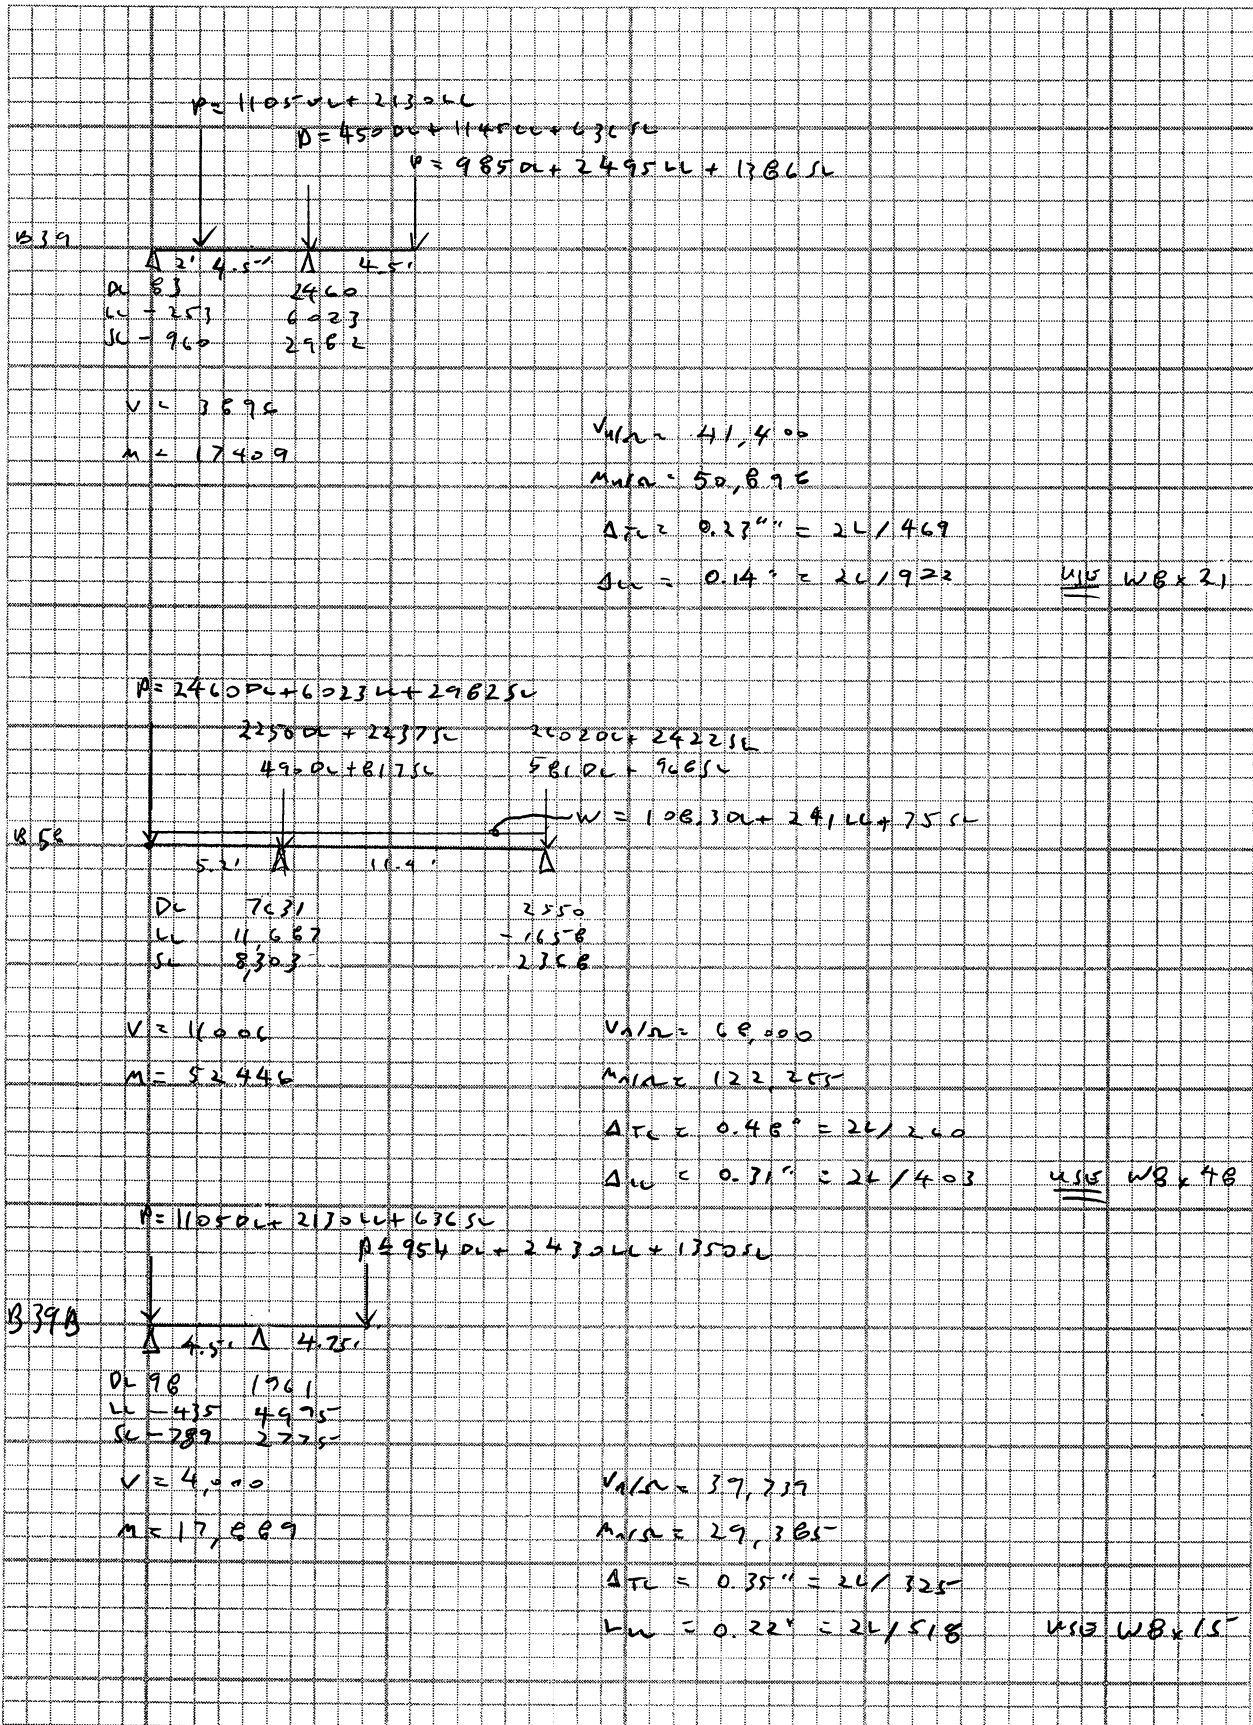 P= 1105 DL + 2130 LL
P= 450 DL + 1145 LL + 636 SL
P= 985 DL + 2495 LL + 1386 SL
B39
2' 4.5' 4.5'
DL 83 2460
LL -253 6023
SL -960 2982
V = 3896
Vn/Ω = 41,400
M = 17409
Mn/Ω = 50,898
ΔTL = 0.23"" = 2L/469
ΔLL = 0.14" = 2L/922 USE W8x21
P= 2460 DL + 6023 LL + 2982 SL
2250 DL + 2237 SL 2602 DL + 2422 SL
490 DL + 817 SL 581 DL + 968 SL
W = 108.3 DL + 241 LL + 75 SL
B58
5.2' 11.4'
DL 7631 2550
LL 11,687 -1658
SL 8,303 2368
V = 11006 Vn/Ω = 68,000
M = 52446 Mn/Ω = 122,255
ΔTL = 0.48" = 2L/260
ΔLL = 0.31" = 2L/403 USE W8x48
P= 1105 DL + 2130 LL + 636 SL
P= 954 DL + 2430 LL + 1350 SL
B39B
4.5' 4.75'
DL 98 1961
LL -435 4995
SL -789 2775
V = 4,000 Vn/Ω = 39,739
M = 17,889 Mn/Ω = 29,385
ΔTL = 0.35" = 2L/325
LLL = 0.22" = 2L/518 USE W8x15